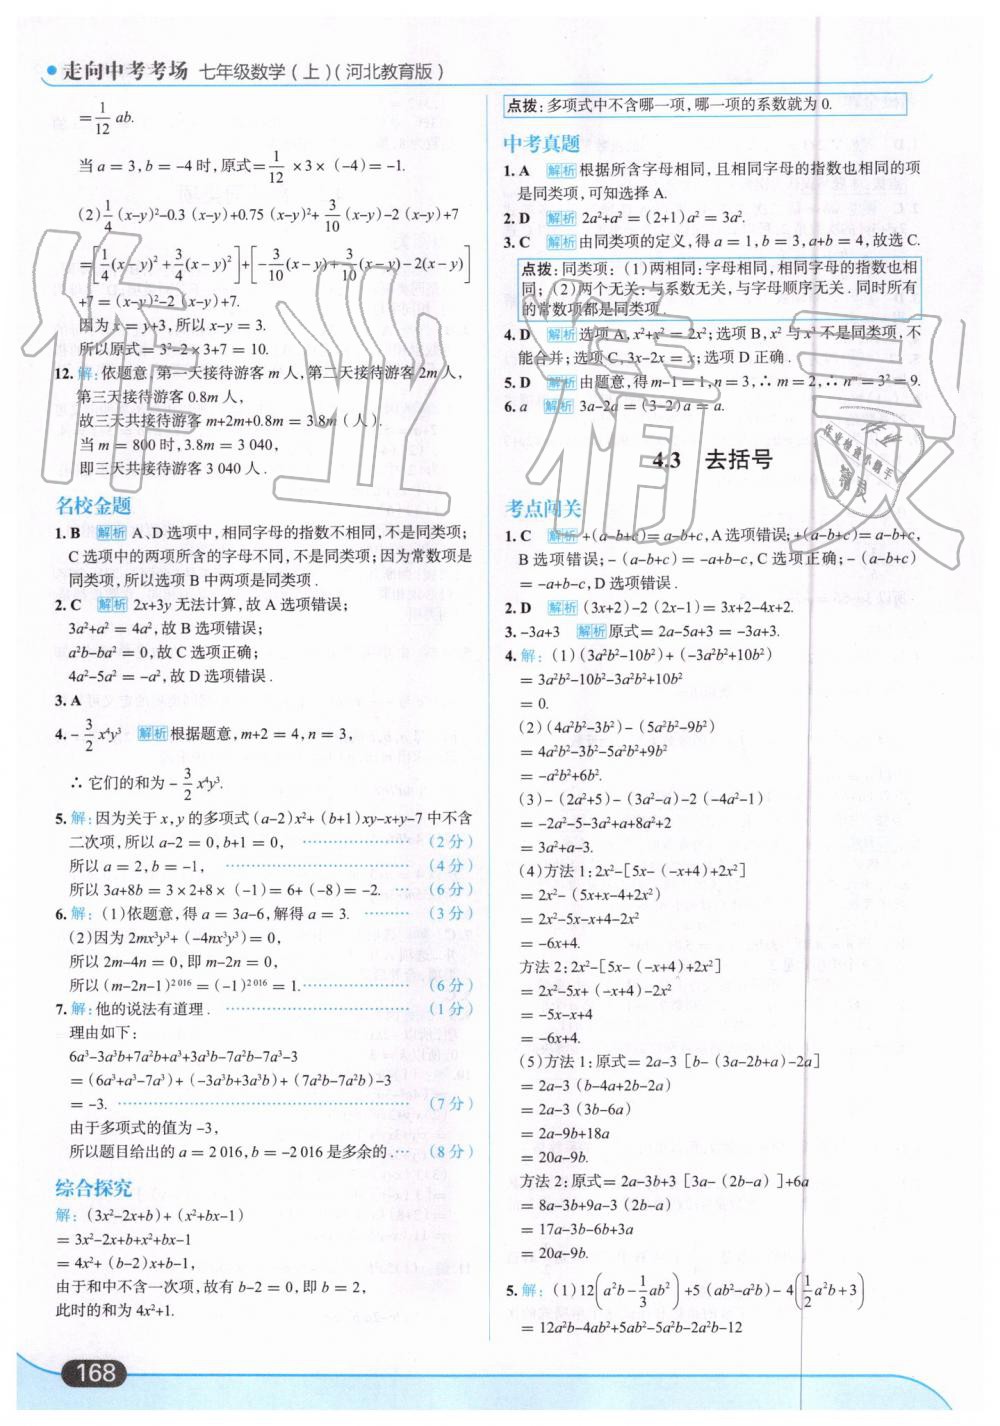 走向中考考场 七年级数学(上)(河北教育版)
=1/12 ab.
当 a=3,b=-4 时,原式=1/12×3×(-4)=-1.
(2)1/4(x-y)²-0.3(x-y)+0.75(x-y)²+3/10(x-y)-2(x-y)+7
=[1/4(x-y)²+3/4(x-y)²]+[-3/10(x-y)+3/10(x-y)-2(x-y)]
+7=(x-y)²-2(x-y)+7.
因为 x=y+3,所以 x-y=3.
所以原式=3²-2×3+7=10.
12.解:依题意,第一天接待游客 m 人,第二天接待游客 2m 人,
第三天接待游客 0.8m 人,
故三天共接待游客 m+2m+0.8m=3.8m(人).
当 m=800 时,3.8m=3 040,
即三天共接待游客 3 040 人.
名校金题
1.B 解析 A、D 选项中,相同字母的指数不相同,不是同类项;
C 选项中的两项所含的字母不同,不是同类项;因为常数项是
同类项,所以选项 B 中两项是同类项.
2.C 解析 2x+3y 无法计算,故 A 选项错误;
3a²+a²=4a²,故 B 选项错误;
a²b-ba²=0,故 C 选项正确;
4a²-5a²=-a²,故 D 选项错误.
3.A
4.-3/2 x⁴y³ 解析 根据题意,m+2=4,n=3,
∴它们的和为-3/2 x⁴y³.
5.解:因为关于 x,y 的多项式(a-2)x²+(b+1)xy-x+y-7 中不含
二次项,所以 a-2=0,b+1=0, ………………(2分)
所以 a=2,b=-1, ………………(4分)
所以 3a+8b=3×2+8×(-1)=6+(-8)=-2. …(6分)
6.解:(1)依题意,得 a=3a-6,解得 a=3. ………(3分)
(2)因为 2mx³y³+(-4nx³y³)=0,
所以 2m-4n=0,即 m-2n=0,
所以(m-2n-1)²⁰¹⁶=(-1)²⁰¹⁶=1. ………………(6分)
7.解:他的说法有道理. ………………(1分)
理由如下:
6a³-3a³b+7a²b+a³+3a³b-7a²b-7a³-3
=(6a³+a³-7a³)+(-3a³b+3a³b)+(7a²b-7a²b)-3
=-3. ………………(7分)
由于多项式的值为-3,
所以题目给出的 a=2 016,b=-2 016 是多余的.…(8分)
综合探究
解:(3x²-2x+b)+(x²+bx-1)
=3x²-2x+b+x²+bx-1
=4x²+(b-2)x+b-1,
由于和中不含一次项,故有 b-2=0,即 b=2,
此时的和为 4x²+1.
168
点拨:多项式中不含哪一项,哪一项的系数就为 0.
中考真题
1.A 解析 根据所含字母相同,且相同字母的指数也相同的项
是同类项,可知选择 A.
2.D 解析 2a²+a²=(2+1)a²=3a².
3.C 解析 由同类项的定义,得 a=1,b=3,a+b=4,故选 C.
点拨:同类项:(1)两相同:字母相同,相同字母的指数也相
同;(2)两个无关:与系数无关,与字母顺序无关.同时所有
的常数项都是同类项.
4.D 解析 选项 A,x²+x²=2x²;选项 B,x² 与 x³ 不是同类项,不
能合并;选项 C,3x-2x=x;选项 D 正确.
5.D 解析 由题意,得 m-1=1,n=3,∴m=2,∴nᵐ=3²=9.
6.a 解析 3a-2a=(3-2)a=a.
4.3 去括号
考点闯关
1.C 解析 +(a-b+c)=a-b+c,A 选项错误;+(a-b+c)=a-b+c,
B 选项错误;-(a-b+c)=-a+b-c,C 选项正确;-(a-b+c)
=-a+b-c,D 选项错误.
2.D 解析 (3x+2)-2(2x-1)=3x+2-4x+2.
3.-3a+3 解析 原式=2a-5a+3=-3a+3.
4.解:(1)(3a²b²-10b²)+(-3a²b²+10b²)
=3a²b²-10b²-3a²b²+10b²
=0.
(2)(4a²b²-3b²)-(5a²b²-9b²)
=4a²b²-3b²-5a²b²+9b²
=-a²b²+6b².
(3)-(2a²+5)-(3a²-a)-2(-4a²-1)
=-2a²-5-3a²+a+8a²+2
=3a²+a-3.
(4)方法 1:2x²-[5x-(-x+4)+2x²]
=2x²-(5x+x-4+2x²)
=2x²-5x-x+4-2x²
=-6x+4.
方法 2:2x²-[5x-(-x+4)+2x²]
=2x²-5x+(-x+4)-2x²
=-5x-x+4
=-6x+4.
(5)方法 1:原式=2a-3[b-(3a-2b+a)-2a]
=2a-3(b-4a+2b-2a)
=2a-3(3b-6a)
=2a-9b+18a
=20a-9b.
方法 2:原式=2a-3b+3[3a-(2b-a)]+6a
=8a-3b+9a-3(2b-a)
=17a-3b-6b+3a
=20a-9b.
5.解:(1)12(a²b-1/3 ab²)+5(ab²-a²b)-4(1/2 a²b+3)
=12a²b-4ab²+5ab²-5a²b-2a²b-12
作业精灵